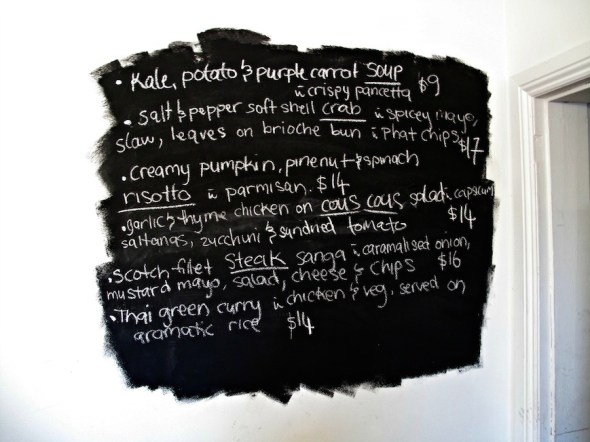 • Kale, potato & purple carrot SOUP
w crispy pancetta $9
• Salt & pepper soft shell crab w spicey mayo,
slaw, leaves on brioche bun w phat chips $17
• creamy pumpkin, pinenut & spinach
risotto w parmisan. $14
• garlic & thyme chicken on cous cous salad w capsicum
saltanas, zucchini & sundried tomato $14
• Scotch fillet steak sanga w caramalised onion,
mustard mayo, salad, cheese & chips $16
• Thai green curry w chicken & veg, served on
aramatic rice $14